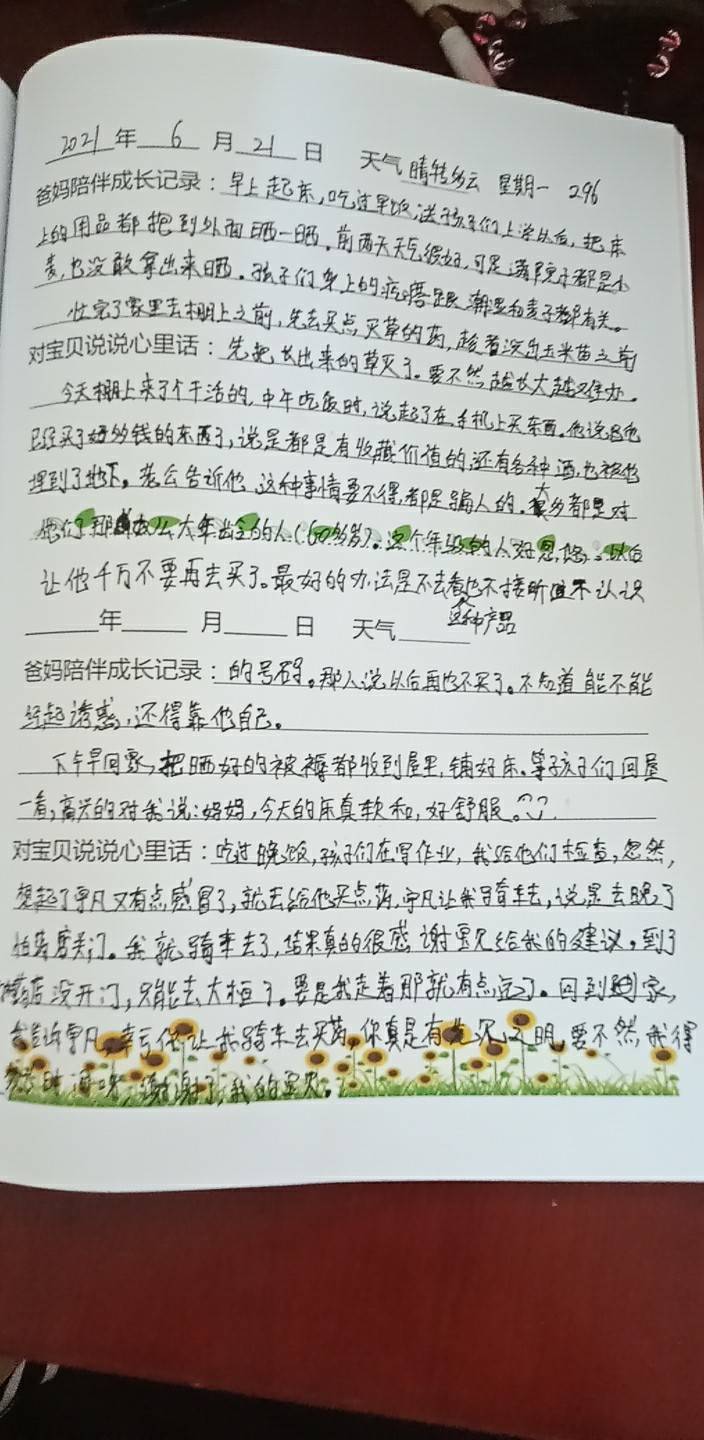 2021年 6 月 21 日 天气 晴转多云 星期一 296
爸妈陪伴成长记录：早上起床，吃过早饭，送孩子们上学以后，把床
上的用品都把到外面晒一晒。前两天天气很好，可是满院子都是小
麦，也没敢拿出来晒。孩子们身上的疙瘩跟潮湿和麦子都有关。
忙完了家里去棚上之前，先去买点灭草的药，趁着没出玉米苗之前
对宝贝说说心里话：先把长出来的草灭了。要不然越长大越难办。
今天棚上来了个干活的，中午吃饭时，说起了在手机上买东西。他说自己
已经买了好多钱的东西了，说是都是有收藏价值的，还有各种酒，也被他
埋到了地下。老公告诉他，这种事情要不得，都是骗人的。大多都是对
他们那么大年龄的人（60多岁）。这个年级的人好忽悠。以后
让他千万不要再去买了。最好的办法是不去看这种产品也不接听不认识
年 月 日 天气
爸妈陪伴成长记录：的号码。那人说以后再也不买了。不知道能不能
经起诱惑，还得靠他自己。
下午早回家，把晒好的被褥都收到屋里，铺好床。等孩子们回屋
一看，高兴的对我说：妈妈，今天的床真软和，好舒服。
对宝贝说说心里话：吃过晚饭，孩子们在写作业，我给他们检查，忽然，
想起了宇凡又有点感冒了，就去给他买点药，宇凡让我骑车去，说是去晚了
怕药店关门。我就骑车去了，结果真的很感谢宝贝给我的建议。到了
药店没开门，只能去大桓了。要是我走着那就有点远了。回到家，
告诉宇凡，幸亏你让我骑车去买药，你真是有先见之明，要不然，我得
谢谢了，我的宝贝。